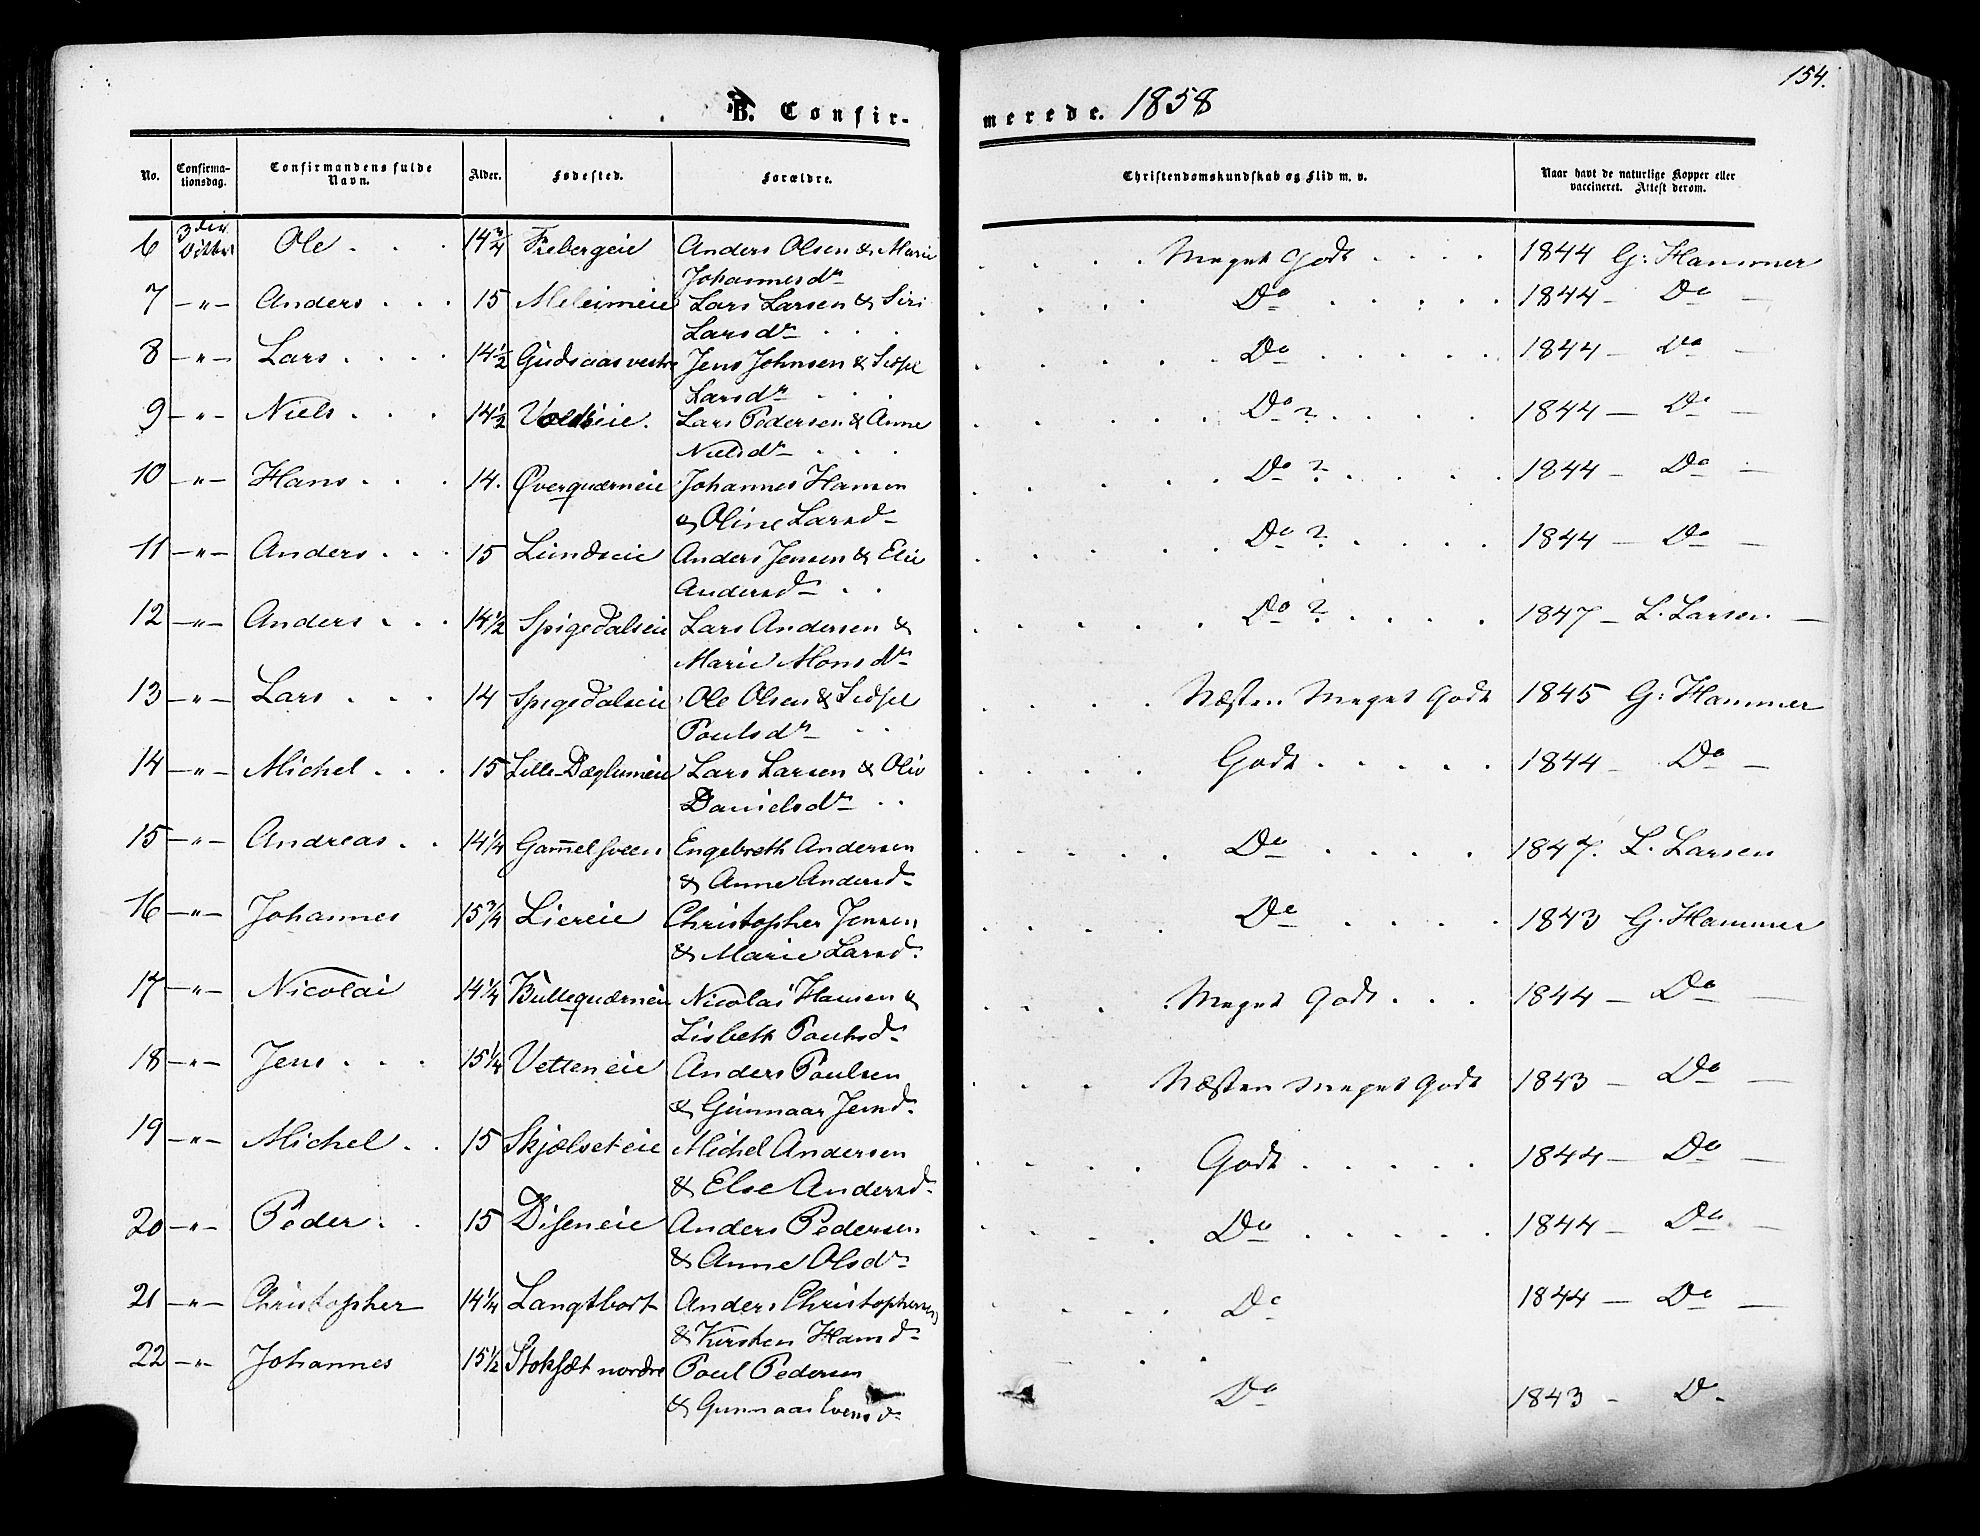 154.
B. Confir-
merede. 1858
No. Confirma-tionsdag. Confirmandens fulde Navn. Alder. Fødested. Forældre. Christendomskundskab og Flid m. v. Naar havt de naturlige Kopper eller vaccineret. Attest derom.
6 3die Octbr Ole . . . 14 3/4 Frebergeie Anders Olsen & Marie Meget Godt . . . . 1844 G: Hammer
Johannesdr
7 —"— Anders . . . 15 Meleimeie Lars Larsen & Siri Do . . . . 1844 — Do —
Larsdr . . .
8 —"— Lars . . . . 14 1/2 Gudsaas vestre Jens Johnsen & Sidsel Do . . . . 1844 — Do —
Larsdr . . .
9 —"— Niels . . . 14 1/2 Voldseie. Lars Pedersen & Anne Do ? . . . . 1844 — Do —
Nielsdr . . .
10 —"— Hans . . . 14. Øverquærneie Johannes Hansen Do ? . . . . 1844 — Do —
& Oline Larsd
11 —"— Anders . . . 15 Lundseie Anders Jensen & Elie Do ? . . . . 1844 — Do —
Andersd . .
12 —"— Anders . . . 14 1/2 Spigedalseie Lars Andersen & Do ? . . . . 1847 — L. Larsen —
Marie Monsdr
13 —"— Lars . . . 14 Spigedalseie Ole Olsen & Sidsel Næsten Meget Godt 1845 G: Hammer
Poulsdr . .
14 —"— Michel . . . 15 Lille-Dæglumeie Lars Larsen & Olie Godt . . . . . 1844 — Do —
Danielsdr . .
15 —"— Andreas . . 14 1/4 Gammelsveen Engebreth Andersen Do . . . . 1847. L. Larsen
& Anne Andersd
16 —"— Johannes 15 3/4 Liereie Christopher Jensen Do . . . . 1843 G. Hammer
& Marie Larsd.
17 —"— Nicolai 14 1/4 Bullequærneie Nicolai Hansen & Meget Godt . . . 1844 — Do —
Lisbeth Poulsd.
18 —"— Jens . . . 15 1/4 Vetteneie Anders Poulsen Næsten Meget Godt 1843 — Do —
& Gunnaar Jensd.
19 —"— Michel . . 15 Skjælseteie Michel Andersen Godt . . . . . 1844 — Do —
& Else Andersd.
20 —"— Peder . . 15 Diseneie Anders Pedersen Do . . . . . 1844 — Do —
& Anne Olsdr
21 —"— Christopher 14 1/4 Langtbort Anders Christophersen Do 1844 — Do —
& Kirsten Hansd.
22 —"— Johannes 15 1/2 Stoksæt nordre Poul Pedersen Do 1843 — Do
& Gunnaar Evensd.